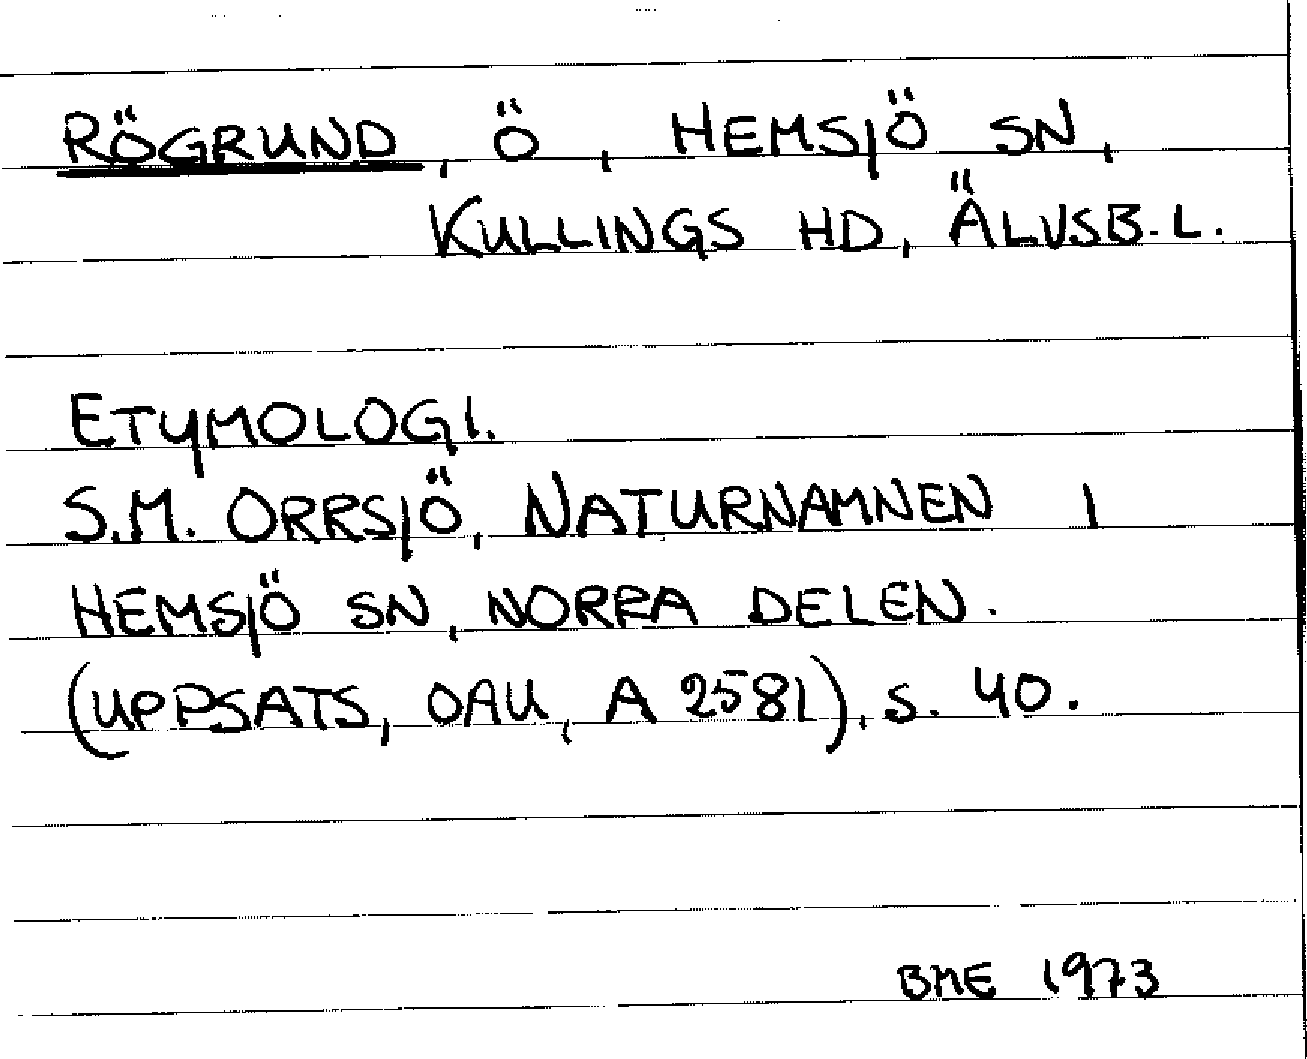 RÖGRUND, Ö, HEMSJÖ SN,
KULLINGS HD, ÄLVSB. L.
ETYMOLOGI.
S.M. ORRSJÖ, NATURNAMNEN I
HEMSJÖ SN, NORRA DELEN.
(UPPSATS, OAU, A 2581), S. 40.
BME 1973